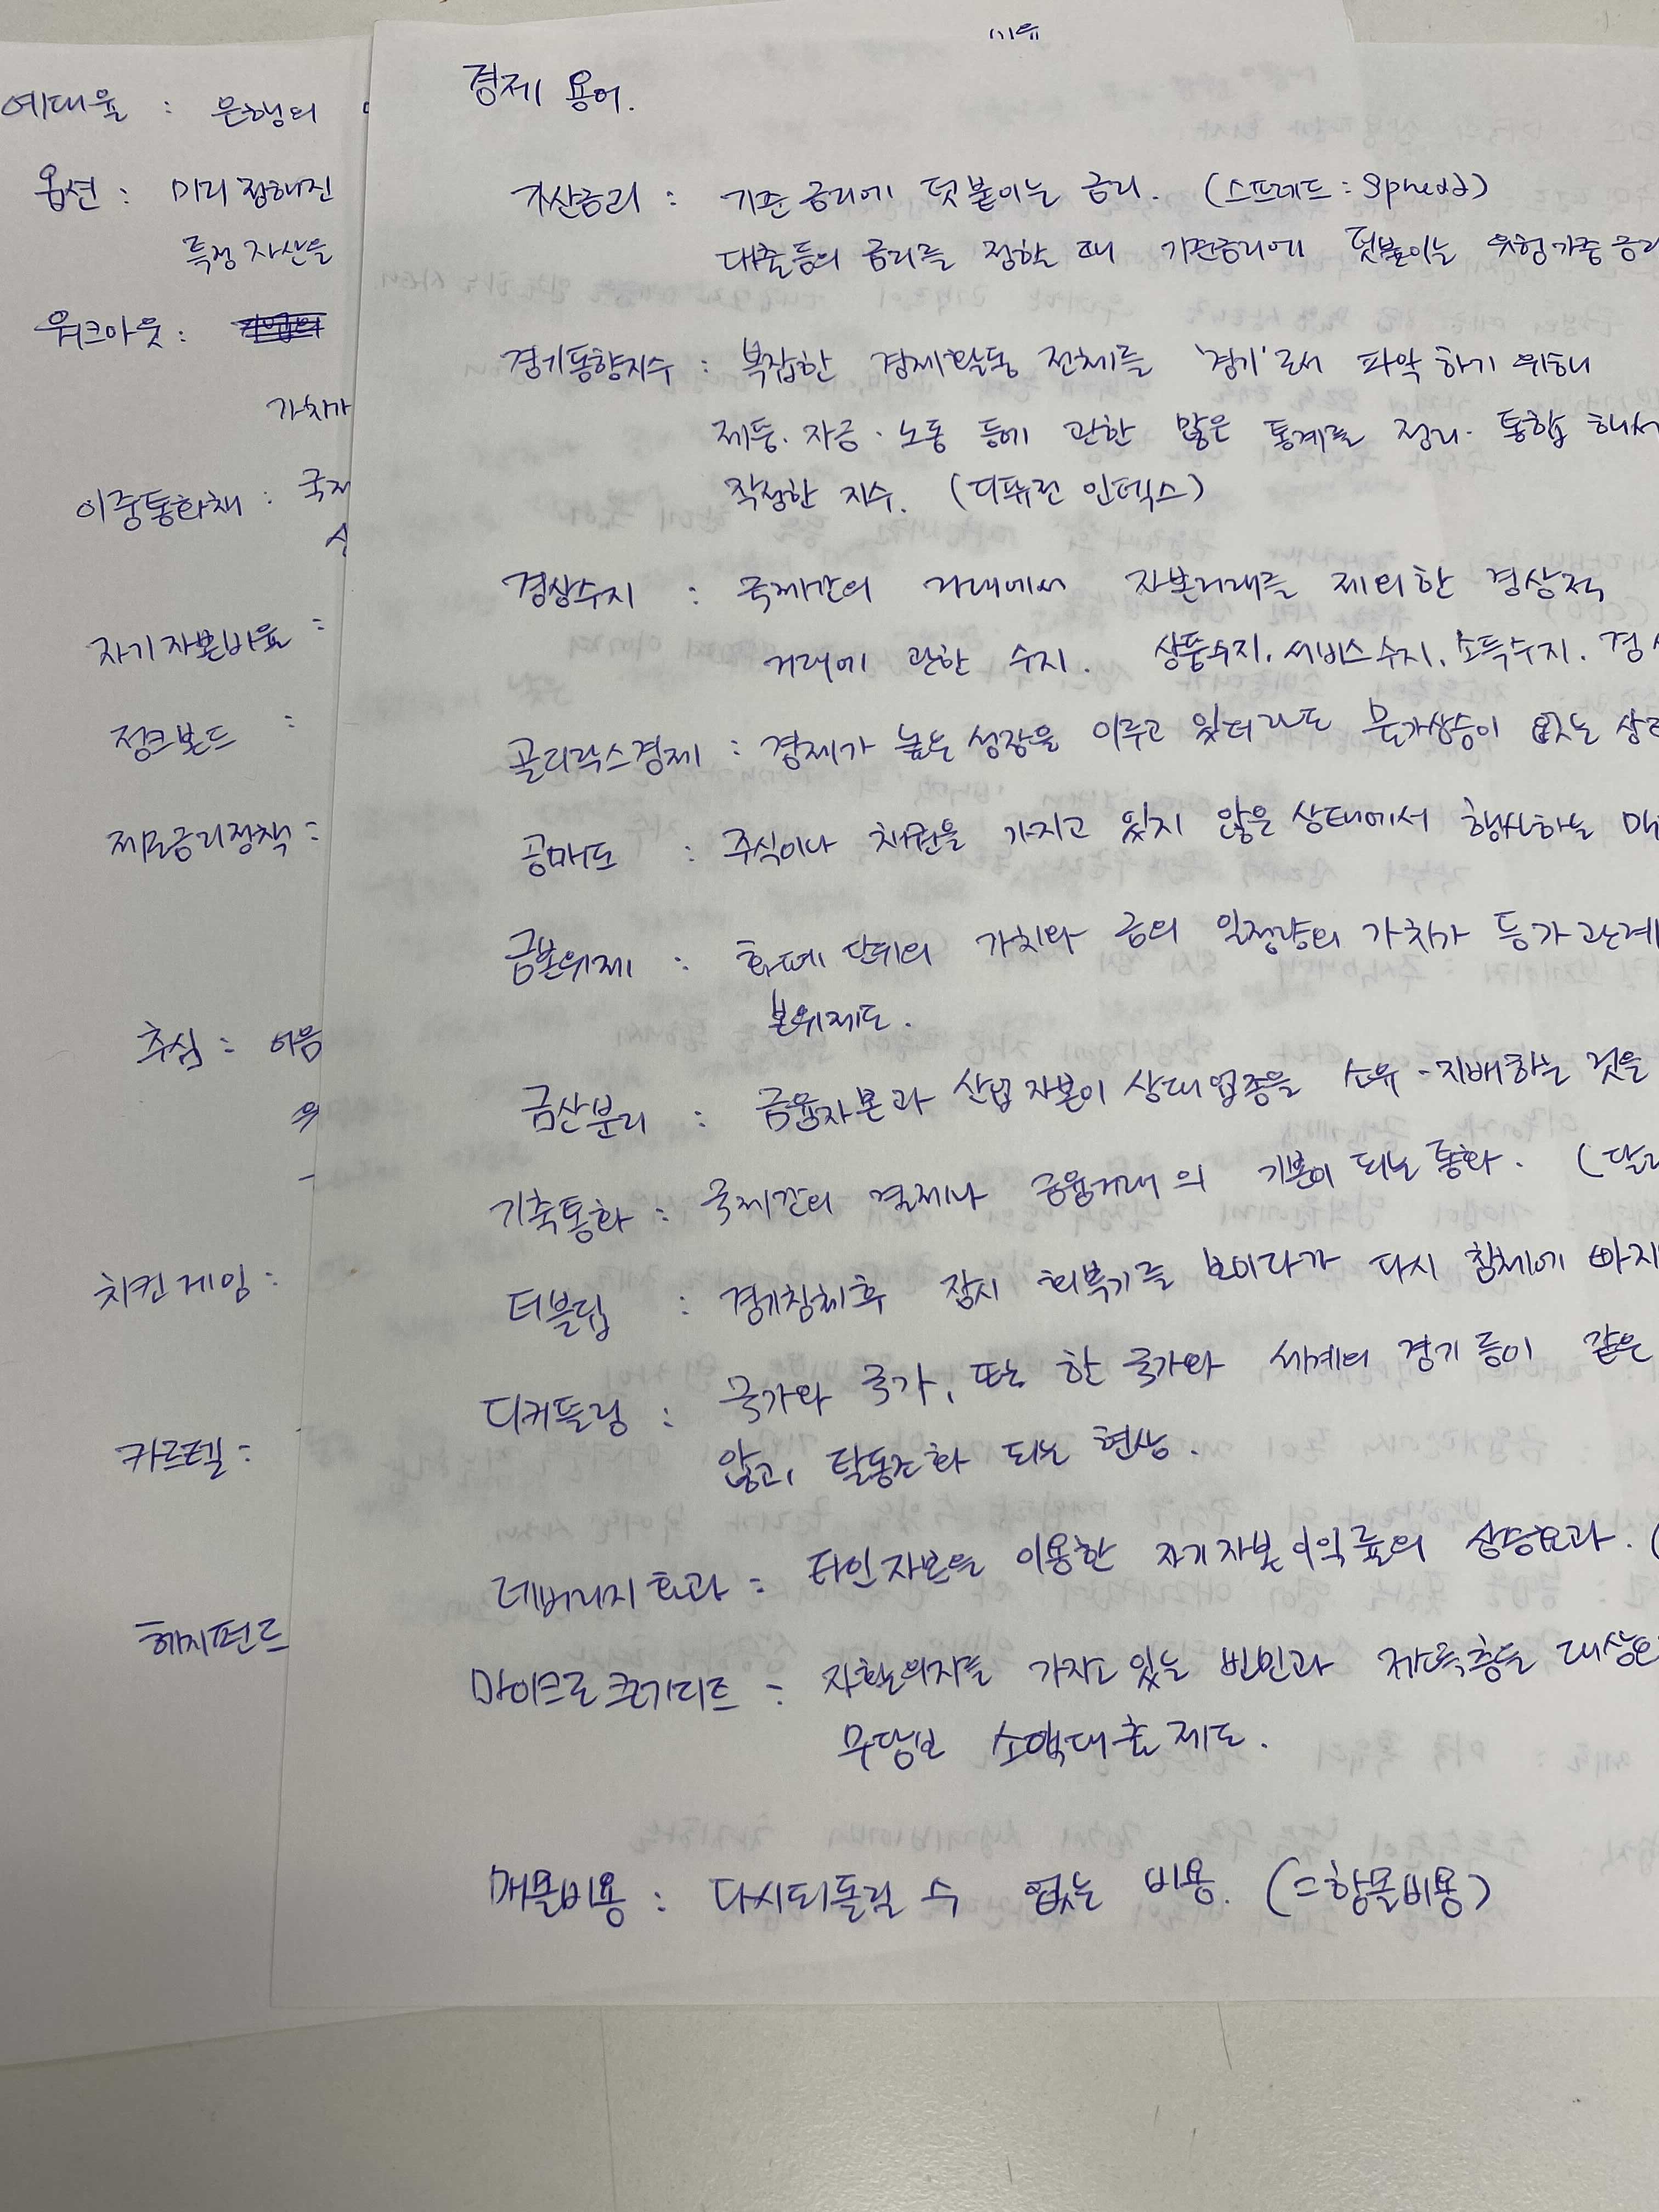 예대율 : 은행의
옵션 : 미리 정해진
특정 자산을
워크아웃 :
가치가
이중통화채 : 국제
자기자본비율 :
정크본드 :
제로금리정책 :
추심 : 어음
치킨게임 :
카르텔 :
헤지펀드
경제 용어.
가산금리 : 기준금리에 덧붙이는 금리. (스프레드 : Spread)
대출등의 금리를 정할 때 기준금리에 덧붙이는 위험가중 금리
경기동향지수 : 복잡한 경제활동 전체를 '경기'로서 파악하기 위해
제품·자금·노동 등에 관한 많은 통계를 정리·통합해서
작성한 지수. (디퓨전 인덱스)
경상수지 : 국제간의 거래에서 자본거래를 제외한 경상적
거래에 관한 수지. 상품수지, 서비스수지, 소득수지, 경
골디락스경제 : 경제가 높은 성장을 이루고 있더라도 물가상승이 없는 상
공매도 : 주식이나 채권을 가지고 있지 않은 상태에서 행사하는
금본위제 : 화폐 단위의 가치와 금의 일정량의 가치가 등가관계
본위제도.
금산분리 : 금융자본과 산업자본이 상대업종을 소유·지배하는 것을
기축통화 : 국제간의 결제나 금융거래의 기본이 되는 통화. (달
더블딥 : 경기침체후 잠시 회복기를 보이다가 다시 침체에 빠지
디커플링 : 국가와 국가, 또는 한 국가와 세계의 경기 등이 같은
않고, 탈동조화 되는 현상.
레버리지효과 : 타인자본을 이용한 자기자본이익률의 상승효과. (
마이크로 크레디트 : 자활의지를 가지고 있는 빈민과 저소득층을 대상으
무담보 소액대출제도.
매몰비용 : 다시되돌릴 수 없는 비용. (=함몰비용)